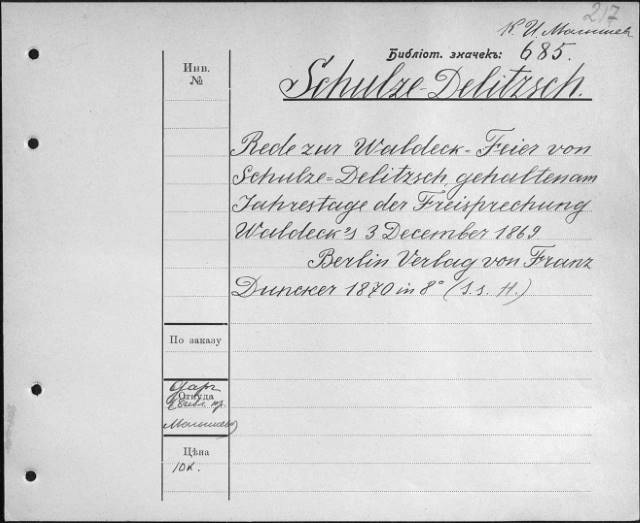 217
К. И. Малышев
Библіот. значекъ: 685.
Инв.
№
Schulze-Delitzsch.
Rede zur Waldeck-Feier von
Schulze-Delitzsch, gehalten am
Jahrestage der Freisprechung
Waldeck's 3 December 1869
Berlin Verlag von Franz
Duncker 1870 in 8° (S.s. H.)
По заказу
Даръ
Откуда
Малышева
Цѣна
10 к.